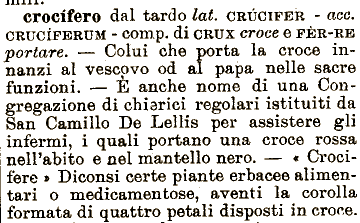 crocífero dal tardo lat. CRÚCIFER - acc.
CRUCÍFERUM - comp. di CRUX croce e FÈR-RE
portare. — Colui che porta la croce in-
nanzi al vescovo od al papa nelle sacre
funzioni. — È anche nome di una Con-
gregazione di chierici regolari istituiti da
San Camillo De Lellis per assistere gli
infermi, i quali portano una croce rossa
nell'abito e nel mantello nero. — « Croci-
fere » Diconsi certe piante erbacee alimen-
tari o medicamentose, aventi la corolla
formata di quattro petali disposti in croce.